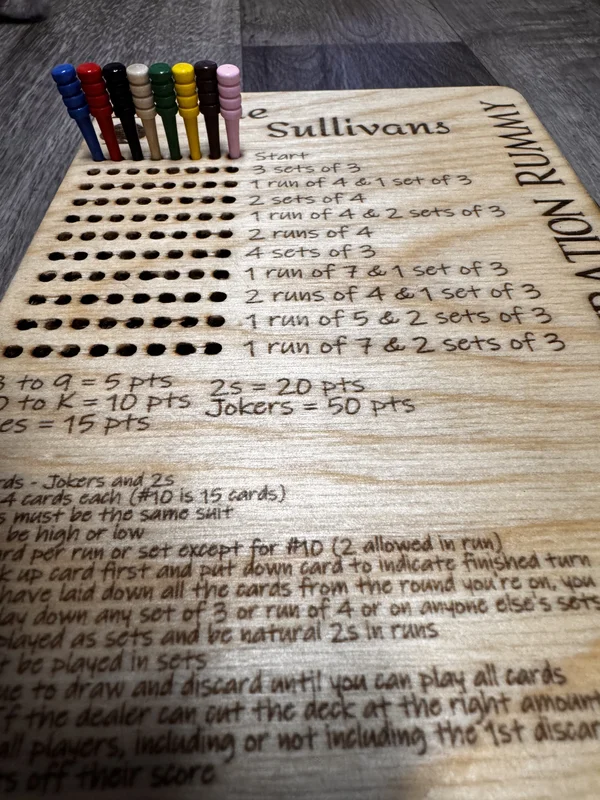 Sullivans
RUMMY
Start
3 sets of 3
1 run of 4 & 1 set of 3
2 sets of 4
1 run of 4 & 2 sets of 3
2 runs of 4
4 sets of 3
1 run of 7 & 1 set of 3
2 runs of 4 & 1 set of 3
1 run of 5 & 2 sets of 3
1 run of 7 & 2 sets of 3
to 9 = 5 pts
2s = 20 pts
to K = 10 pts
Jokers = 50 pts
= 15 pts
- Jokers and 2s
4 cards each (#10 is 15 cards)
must be the same suit
be high or low
per run or set except for #10 (2 allowed in run)
up card first and put down card to indicate finished turn
have laid down all the cards from the round you're on, you
down any set of 3 or run of 4 or on anyone else's sets
played as sets and be natural 2s in runs
be played in sets
to draw and discard until you can play all cards
the dealer can cut the deck at the right amount
all players, including or not including the 1st
off their score